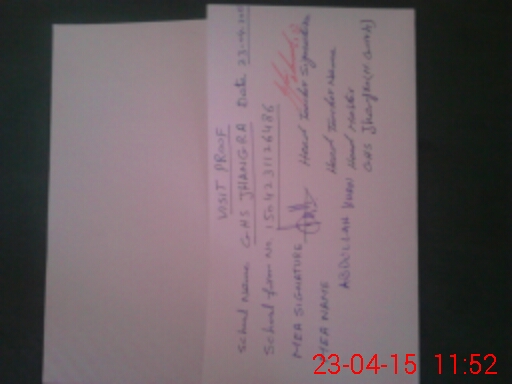 VISIT PROOF
School Name GHS JHANGRA Date 23-04-
School form No. 1504231126486
MEA SIGNATURE Head Teacher Signature
MEA NAME Head Teacher Name
ABDULLAH KHAN Head Master
GHS Jhangra
23-04-15 11:52